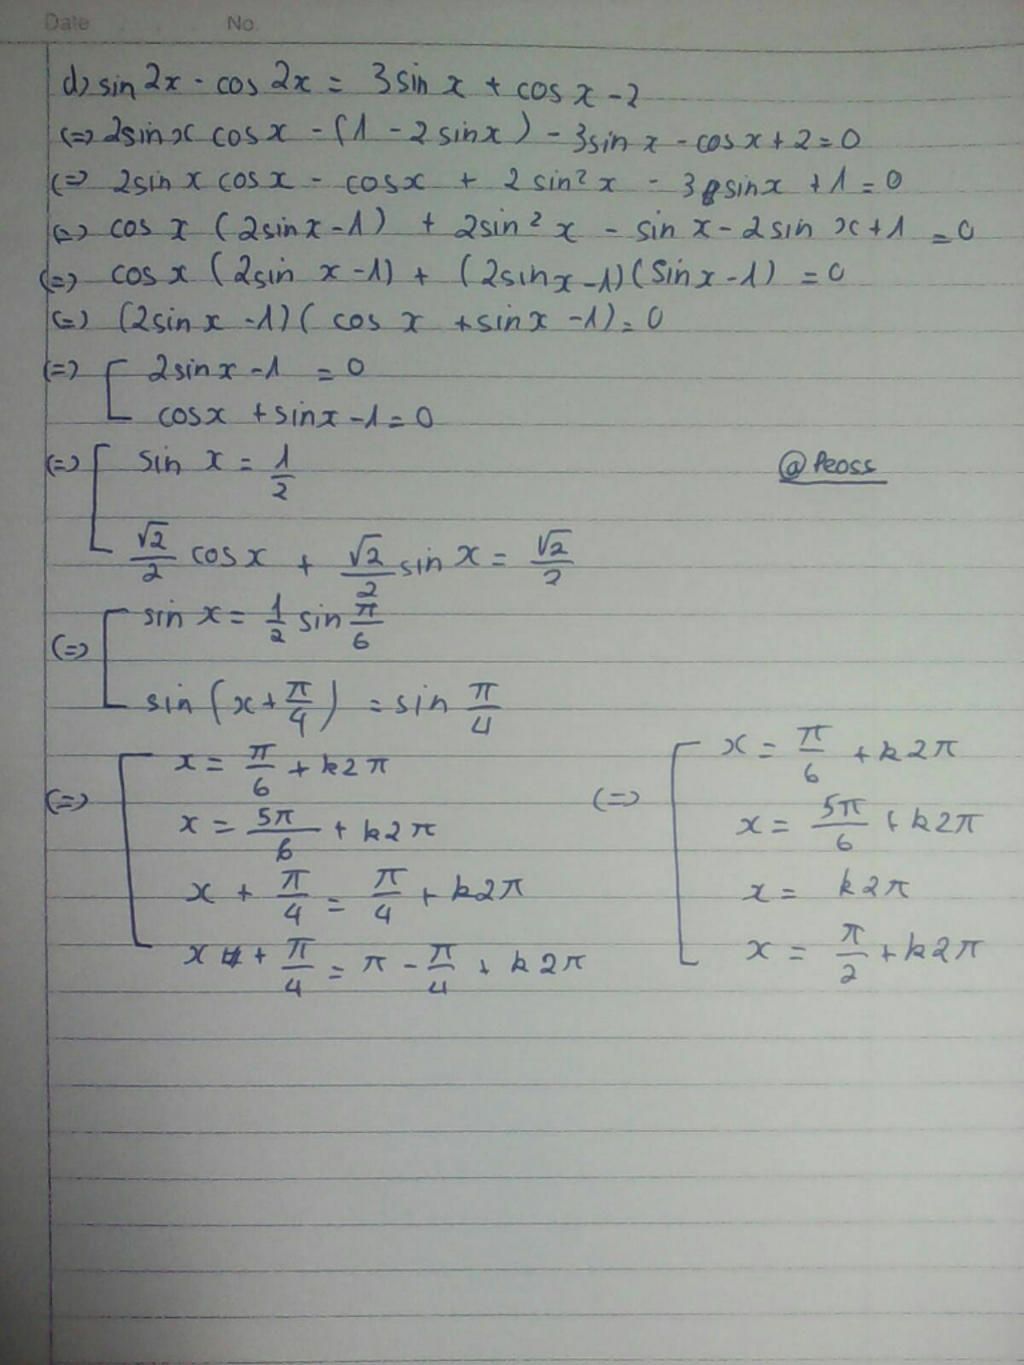 Date No.
d) sin 2x - cos 2x = 3 sin x + cos x - 2
(=) 2sin x cos x - (1 - 2 sin x) - 3sin x - cos x + 2 = 0
(=) 2sin x cos x - cos x + 2 sin² x - 3 sin x + 1 = 0
(=) cos x (2sin x - 1) + 2sin² x - sin x - 2 sin x + 1 = 0
(=) cos x (2sin x - 1) + (2sin x - 1)(sin x - 1) = 0
(=) (2sin x - 1)( cos x + sin x - 1) = 0
(=) [ 2sin x - 1 = 0
cos x + sin x - 1 = 0
(=) [ sin x = 1/2
@Peoss
√2/2 cos x + √2/2 sin x = √2/2
(=) [ sin x = 1/2 sin π/6
sin (x + π/4) = sin π/4
(=) [ x = π/6 + k2π
x = 5π/6 + k2π
x + π/4 = π/4 + k2π
x + π/4 = π - π/4 + k2π
(=) [ x = π/6 + k2π
x = 5π/6 + k2π
x = k2π
x = π/2 + k2π